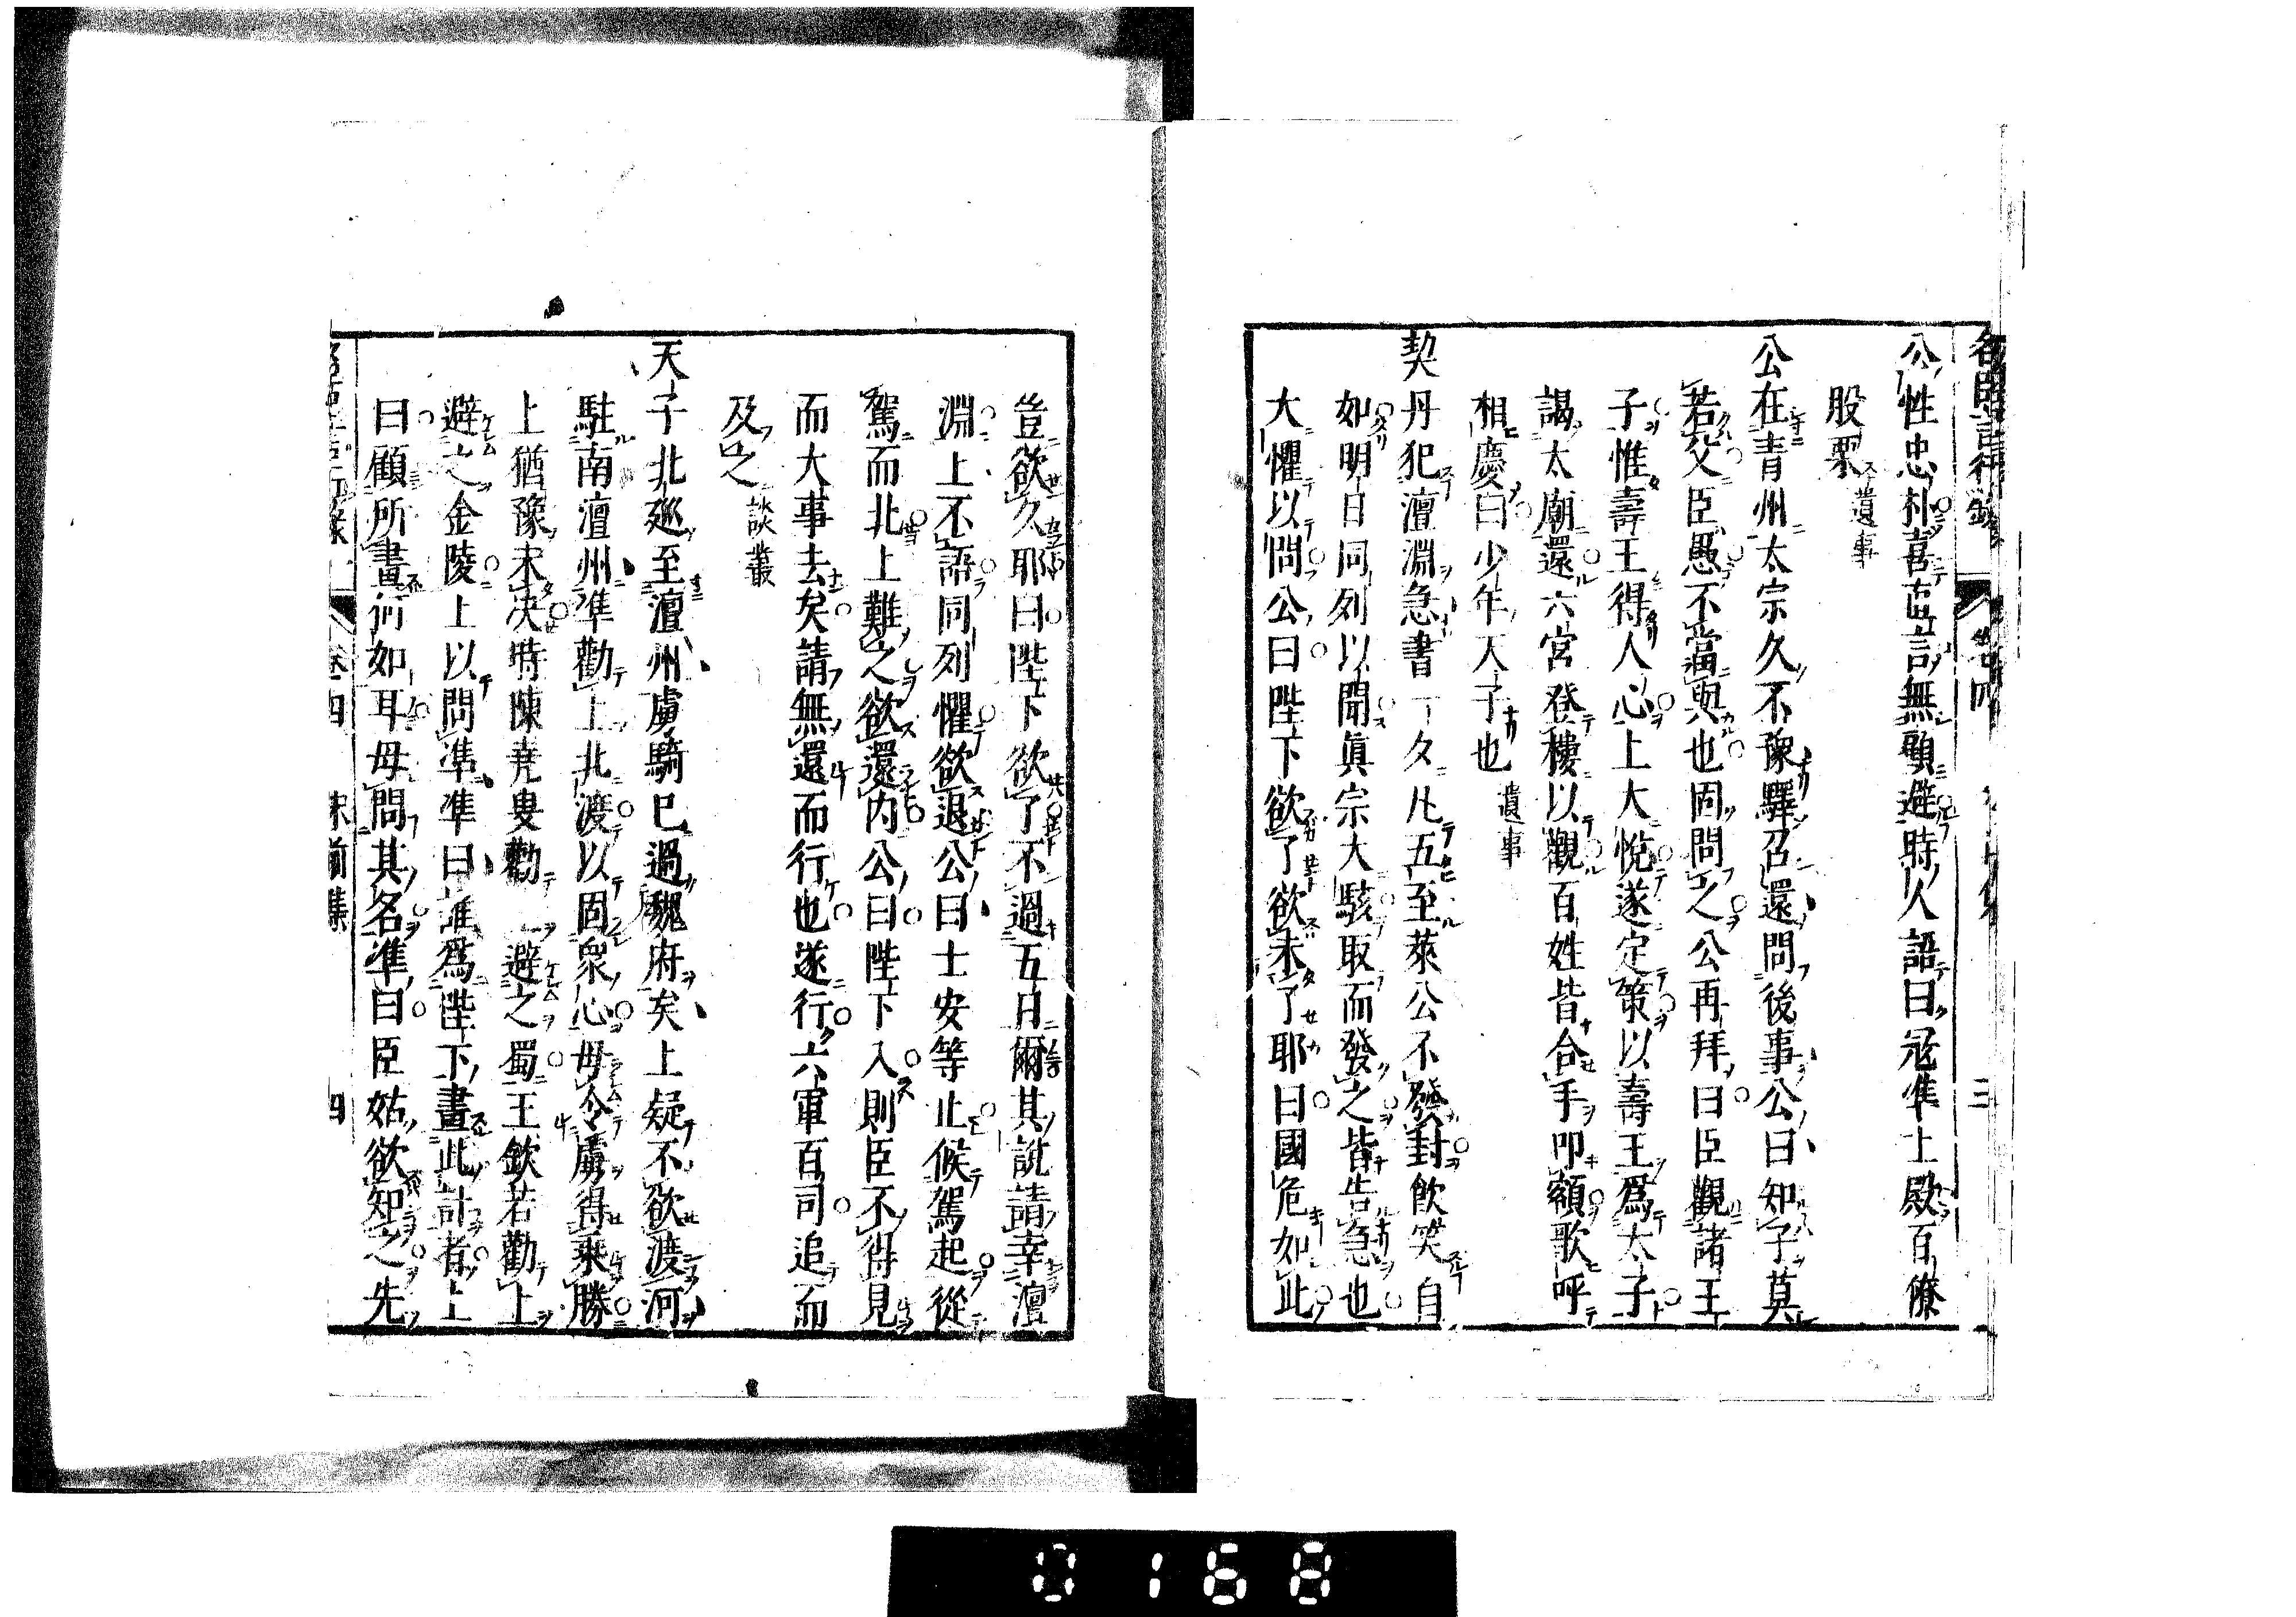 名臣言行錄
卷四
三
公性忠朴喜直言無顧避時人語曰冦準上殿百僚
股栗遺事
公在青州太宗久不豫驛召還問後事公曰知子莫
若父臣愚不當與也固問之公再拜曰臣觀諸王
子惟壽王得人心上大悅遂定策以壽王爲太子
謁太廟還六宮登樓以觀百姓皆合手叩額歌呼
相慶曰少年天子也遺事
契丹犯澶淵急書一夕凡五至萊公不發封飲笑自
如明日同列以聞眞宗大駭取而發之皆告急也
大懼以問公曰陛下欲了欲未了耶曰國危如此
豈欲久耶曰陛下欲了不過五日爾其說請幸澶
淵上不語同列懼欲退公曰士安等止候駕起從
駕而北上難之欲還內公曰陛下入則臣不得見
而大事去矣請無還而行也遂行六軍百司追而
及之談叢
天子北廵至澶州虜騎已過魏府矣上疑不欲渡河
駐南澶州準勸上北渡以固衆心毋令虜得乘勝
上猶豫未决時陳堯叟勸上避之蜀王欽若勸上
避之金陵上以問準準曰誰爲陛下畫此計者上
曰顧所畫何如耳毋問其名準曰臣姑欲知之先
卷四
宋前集
四